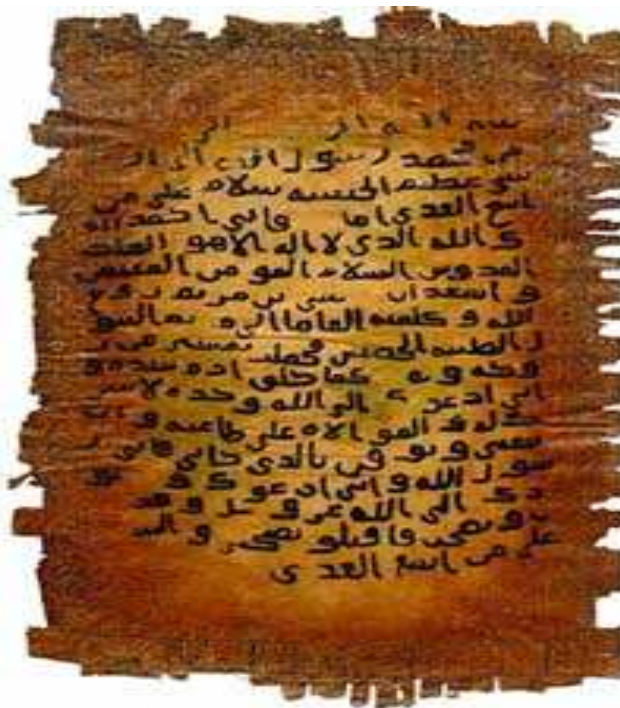 بسم الله الر الر
من محمد رسول الله الى ال
شي عظيم الحبشة سلام على من
اتبع الهدى اما فاني احمد الي
ك الله الذي لا اله الا هو الملك
القدوس السلام المومن المهيمن
و اشهد ان عيسى بن مريم روح
الله و كلمته القاها الى مريم البتو
ل الطيبة الحصينة فحملت بعيسى من ر
وحه و كما خلق ادم بيده و
اني ادعو الى الله وحده لا شر
يك له و الموالاة على طاعته و ان
تتبعني و توقن بالذي جاني فاني ر
سول الله و اني ادعوك و جنو
دك الى الله عز و جل و قد
ت و نصحت فاقبلو نصيحتي و السلا
على من اتبع الهدى